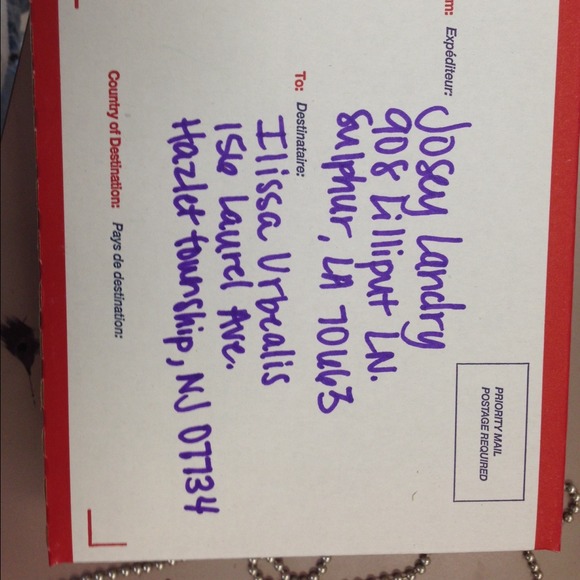 m: Expéditeur:
Josey Landry
908 Lilliput LN.
Sulphur, LA 70663
PRIORITY MAIL
POSTAGE REQUIRED
To: Destinataire:
Ilissa Urbealis
156 Laurel Ave.
Hazlet township, NJ 07734
Country of Destination: Pays de destination: